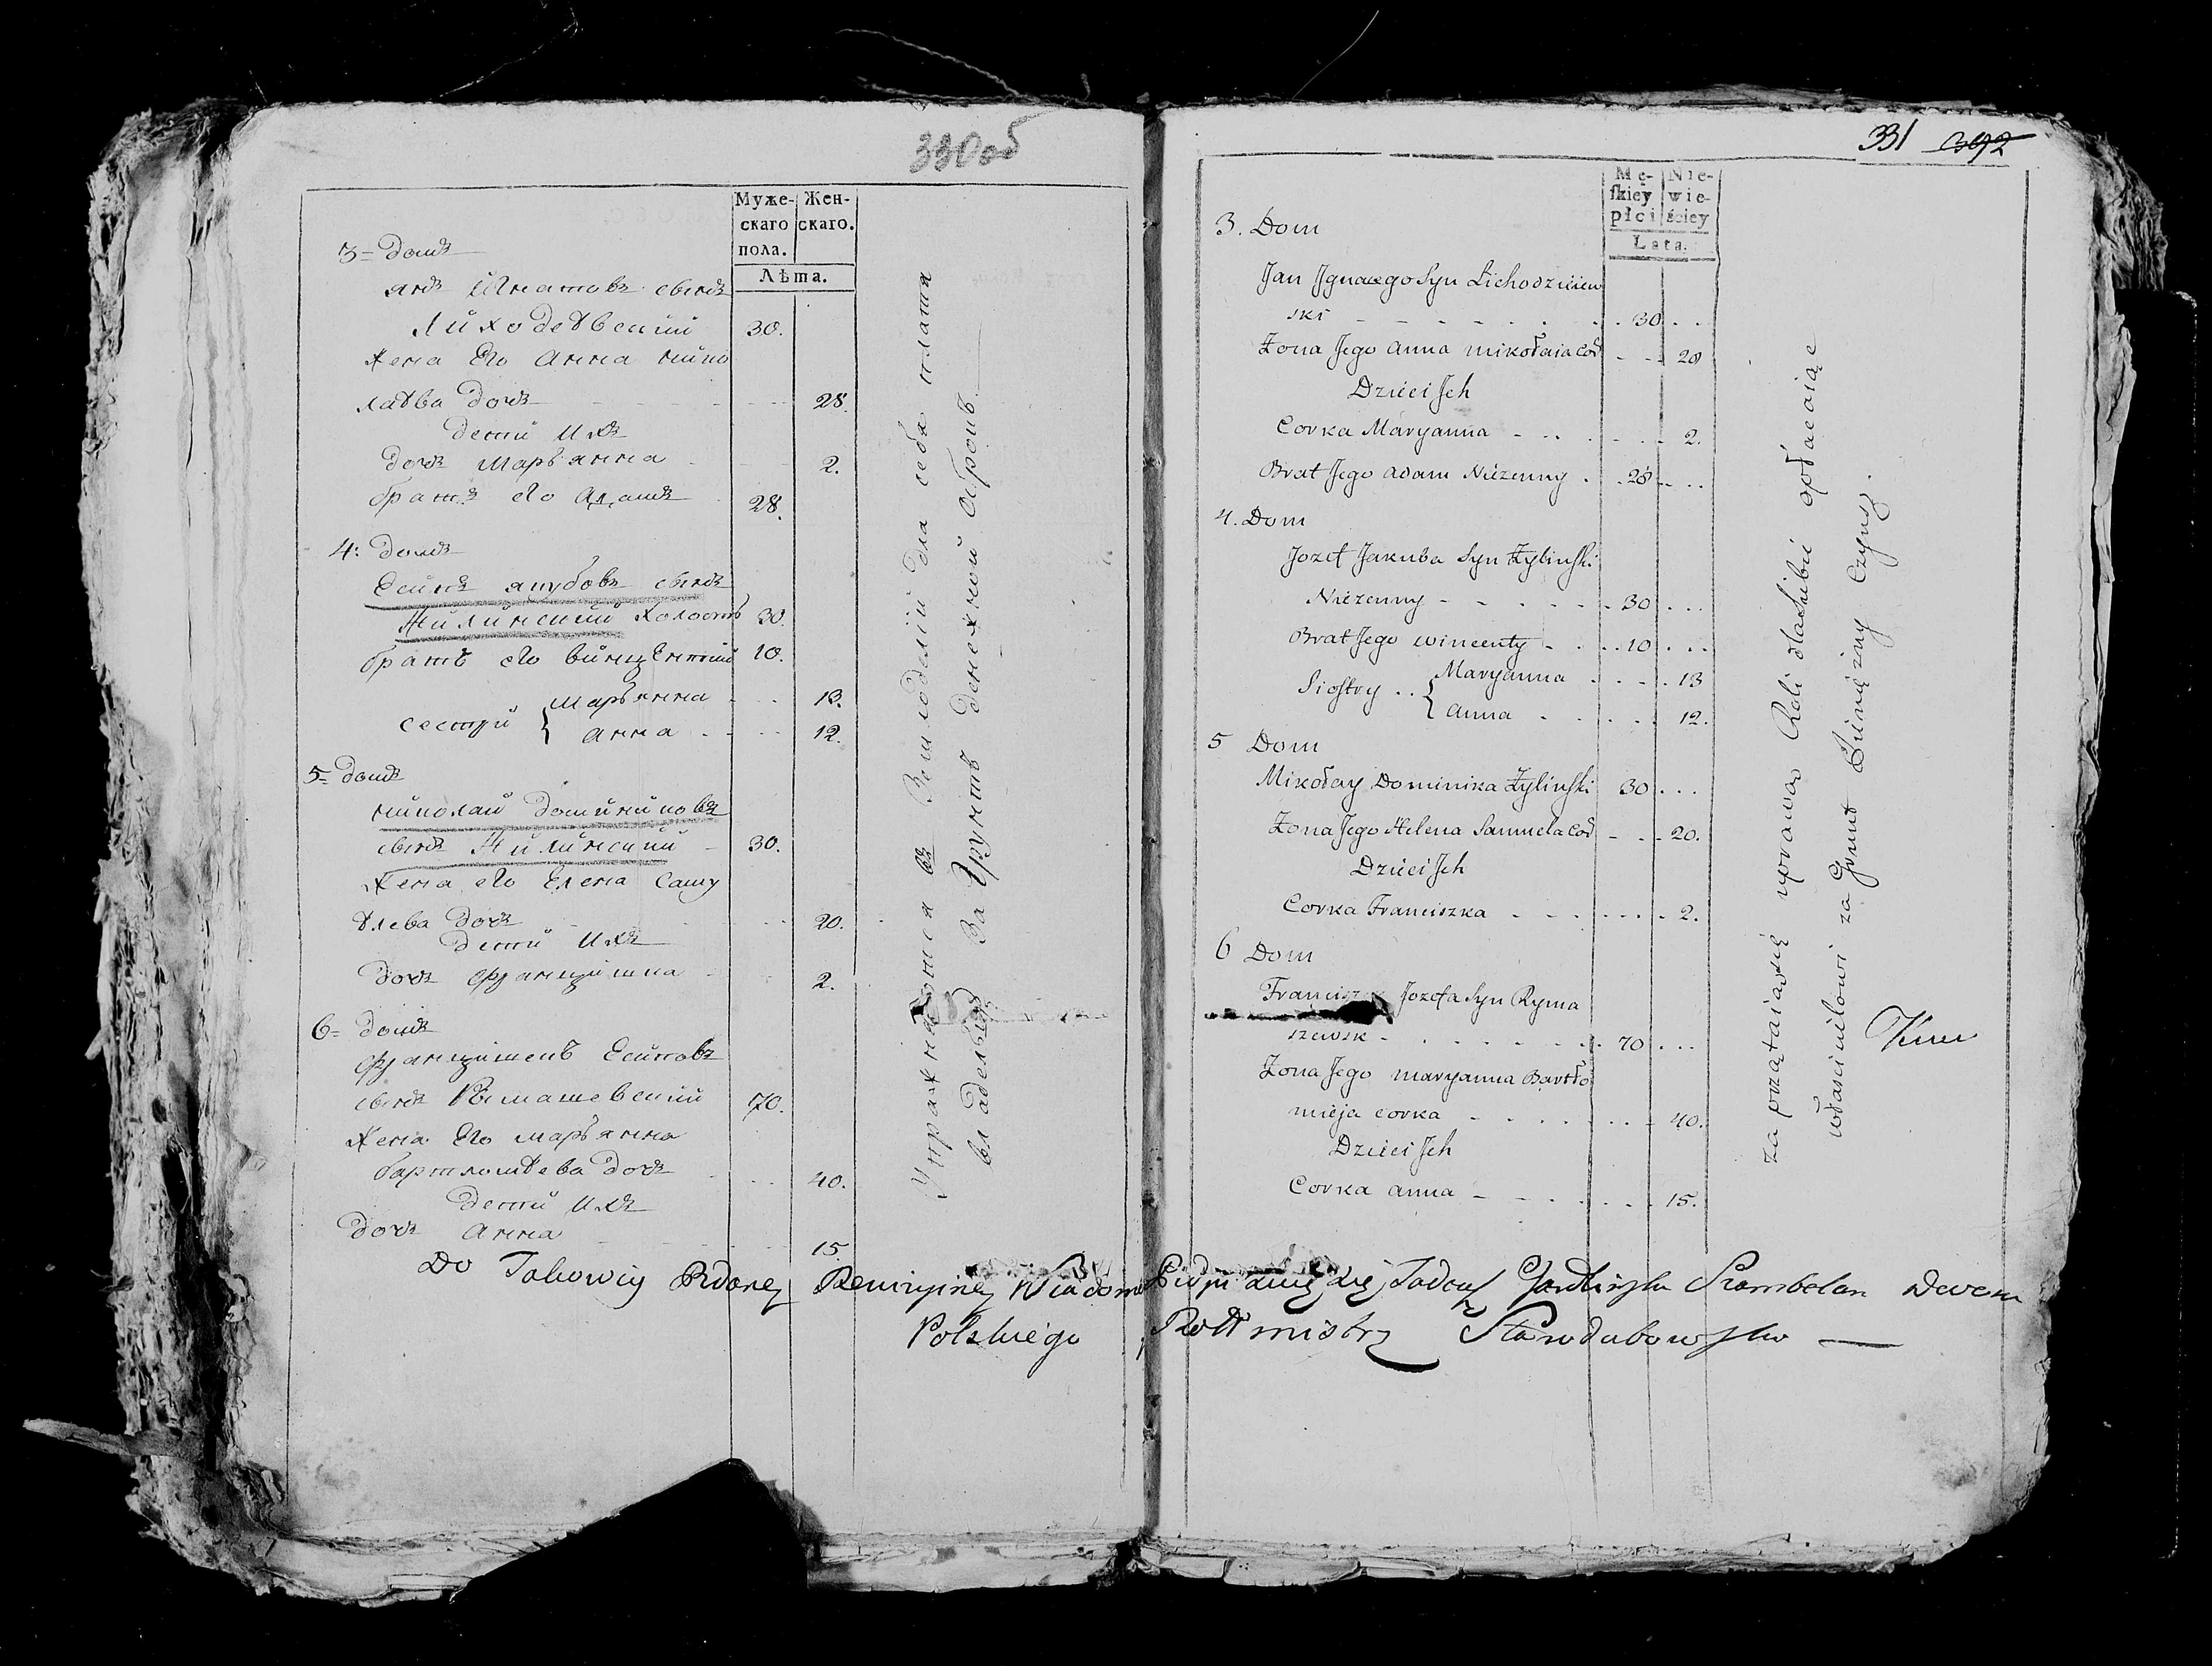 330 об
Муже- Жен-
скаго скаго.
пола.
Лѣта.
3= домъ
янъ Игнатовъ сынъ
Лиходѣвский 30.
жена Его Анна мико
лаѣва дочь 28.
дети Ихъ
дочь Марьянна 2.
братъ его Адамъ 28.
4: домъ
Есипъ якубовъ сынъ
Жилинский холостъ 30.
братъ его винцентий 10.
сестри { Марьянна 13.
Анна 12.
5= домъ
николай доминиковъ
сынъ Жилинский 30.
жена его Елена Саму
ѣлева дочь 20.
дети Ихъ
дочь Францишка 2.
6= домъ
Францишекъ Есиповъ
сынъ Рымашевский 70.
жена Его марьянна
бартломѣева дочь 40.
дети Ихъ
дочь Анна 15.
земледелии для себя платя
владельцу за Грунтъ денежной оброкъ
331 392
Mę- Nie-
skiey wie-
płci ściey
Lata.
3. Dom
Jan Jgnacego Syn Lichodziiew
ski 30
Żona Jego Anna mikołaia Cor 28
Dzieci Jch
Corka Maryanna 2.
Brat Jego Adam Nieżenny 28
4. Dom
Jozef Jakuba Syn Żylinski
Nieżenny 30
Brat Jego wincenty 10
Siostry { Maryanna 13
Anna 12.
5 Dom
Mikołay Dominika Żylinski 30
Żona Jego Helena Samuela Cor 20.
Dzieci Jch
Corka Franciszka 2.
6 Dom
Jozefa Syn Ryma
szewsk 70
Żona Jego maryanna Bartło
mieja corka 40.
Dzieci Jch
Corka Anna 15.
uprawą Roli dla siebie opłacaiąc
własicielowi za Grunt Pienięzny Czynsz.
Do Takowey Podaney Rewizyiney
Szambelan
Polskiego Rottmistrz Starodubowski